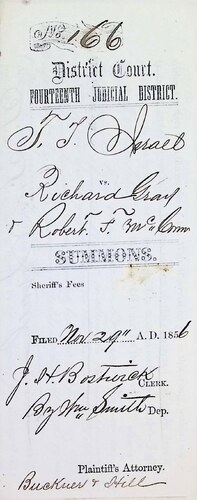 No. 166
District Court.
FOURTEENTH JUDICIAL DISTRICT.
T. T. Israel
vs.
Richard Gray
& Robert. F. T. McConn
SUMMONS.
Sheriff's Fees
FILED Nov. 29" A. D. 1856
J. H. Bostwick CLERK.
By Wm Smith Dep.
Plaintiff's Attorney.
Buckner & Hill